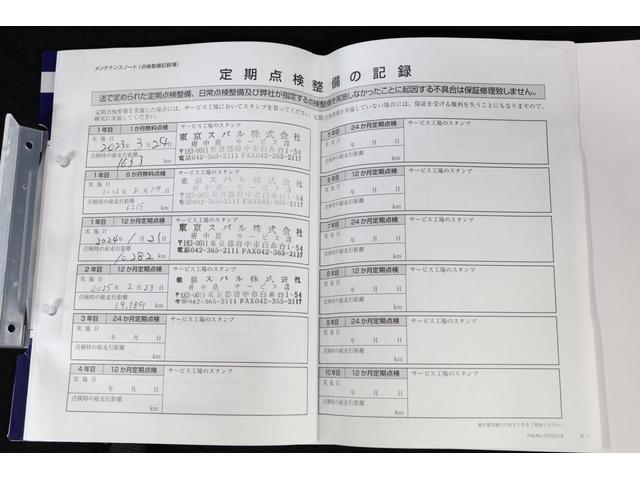 メンテナンスノート(点検整備記録簿)
定期点検整備の記録
法で定められた定期点検整備、日常点検整備及び弊社が指定する点検整備を実施しなかったことに起因する不具合は保証修理致しません。
1年目 1か月無料点検
サービス工場のスタンプ
実施日
2023年3月24日
点検時の総走行距離
1633 km
東京スバル株式会社
府中店 サービス課
〒183-0011東京都府中市白糸台1-54
電話042-365-2111 FAX042-365-2117
1年目 6か月無料点検
サービス工場のスタンプ
実施日
点検時の総走行距離
6215 km
東京スバル株式会社
府中店 サービス課
〒183-0011東京都府中市白糸台1-54
電話042-365-2111 FAX042-365-2117
1年目 12か月定期点検
サービス工場のスタンプ
実施日
2024年1月21日
点検時の総走行距離
10282 km
東京スバル株式会社
府中店 サービス課
〒183-0011東京都府中市白糸台1-54
電話042-365-2111 FAX042-365-2117
2年目 12か月定期点検
サービス工場のスタンプ
実施日
2025年2月23日
点検時の総走行距離
19,189 km
東京スバル株式会社
府中店 サービス課
〒183-0011東京都府中市白糸台1-54
電話042-365-2111 FAX042-365-2117
3年目 24か月定期点検
サービス工場のスタンプ
実施日
年 月 日
点検時の総走行距離
km
4年目 12か月定期点検
サービス工場のスタンプ
実施日
年 月 日
点検時の総走行距離
km
5年目 24か月定期点検
サービス工場のスタンプ
実施日
年 月 日
点検時の総走行距離
km
6年目 12か月定期点検
サービス工場のスタンプ
実施日
年 月 日
点検時の総走行距離
km
7年目 24か月定期点検
サービス工場のスタンプ
実施日
年 月 日
点検時の総走行距離
km
8年目 12か月定期点検
サービス工場のスタンプ
実施日
年 月 日
点検時の総走行距離
km
9年目 24か月定期点検
サービス工場のスタンプ
実施日
年 月 日
点検時の総走行距離
km
10年目 12か月定期点検
サービス工場のスタンプ
実施日
年 月 日
点検時の総走行距離
km